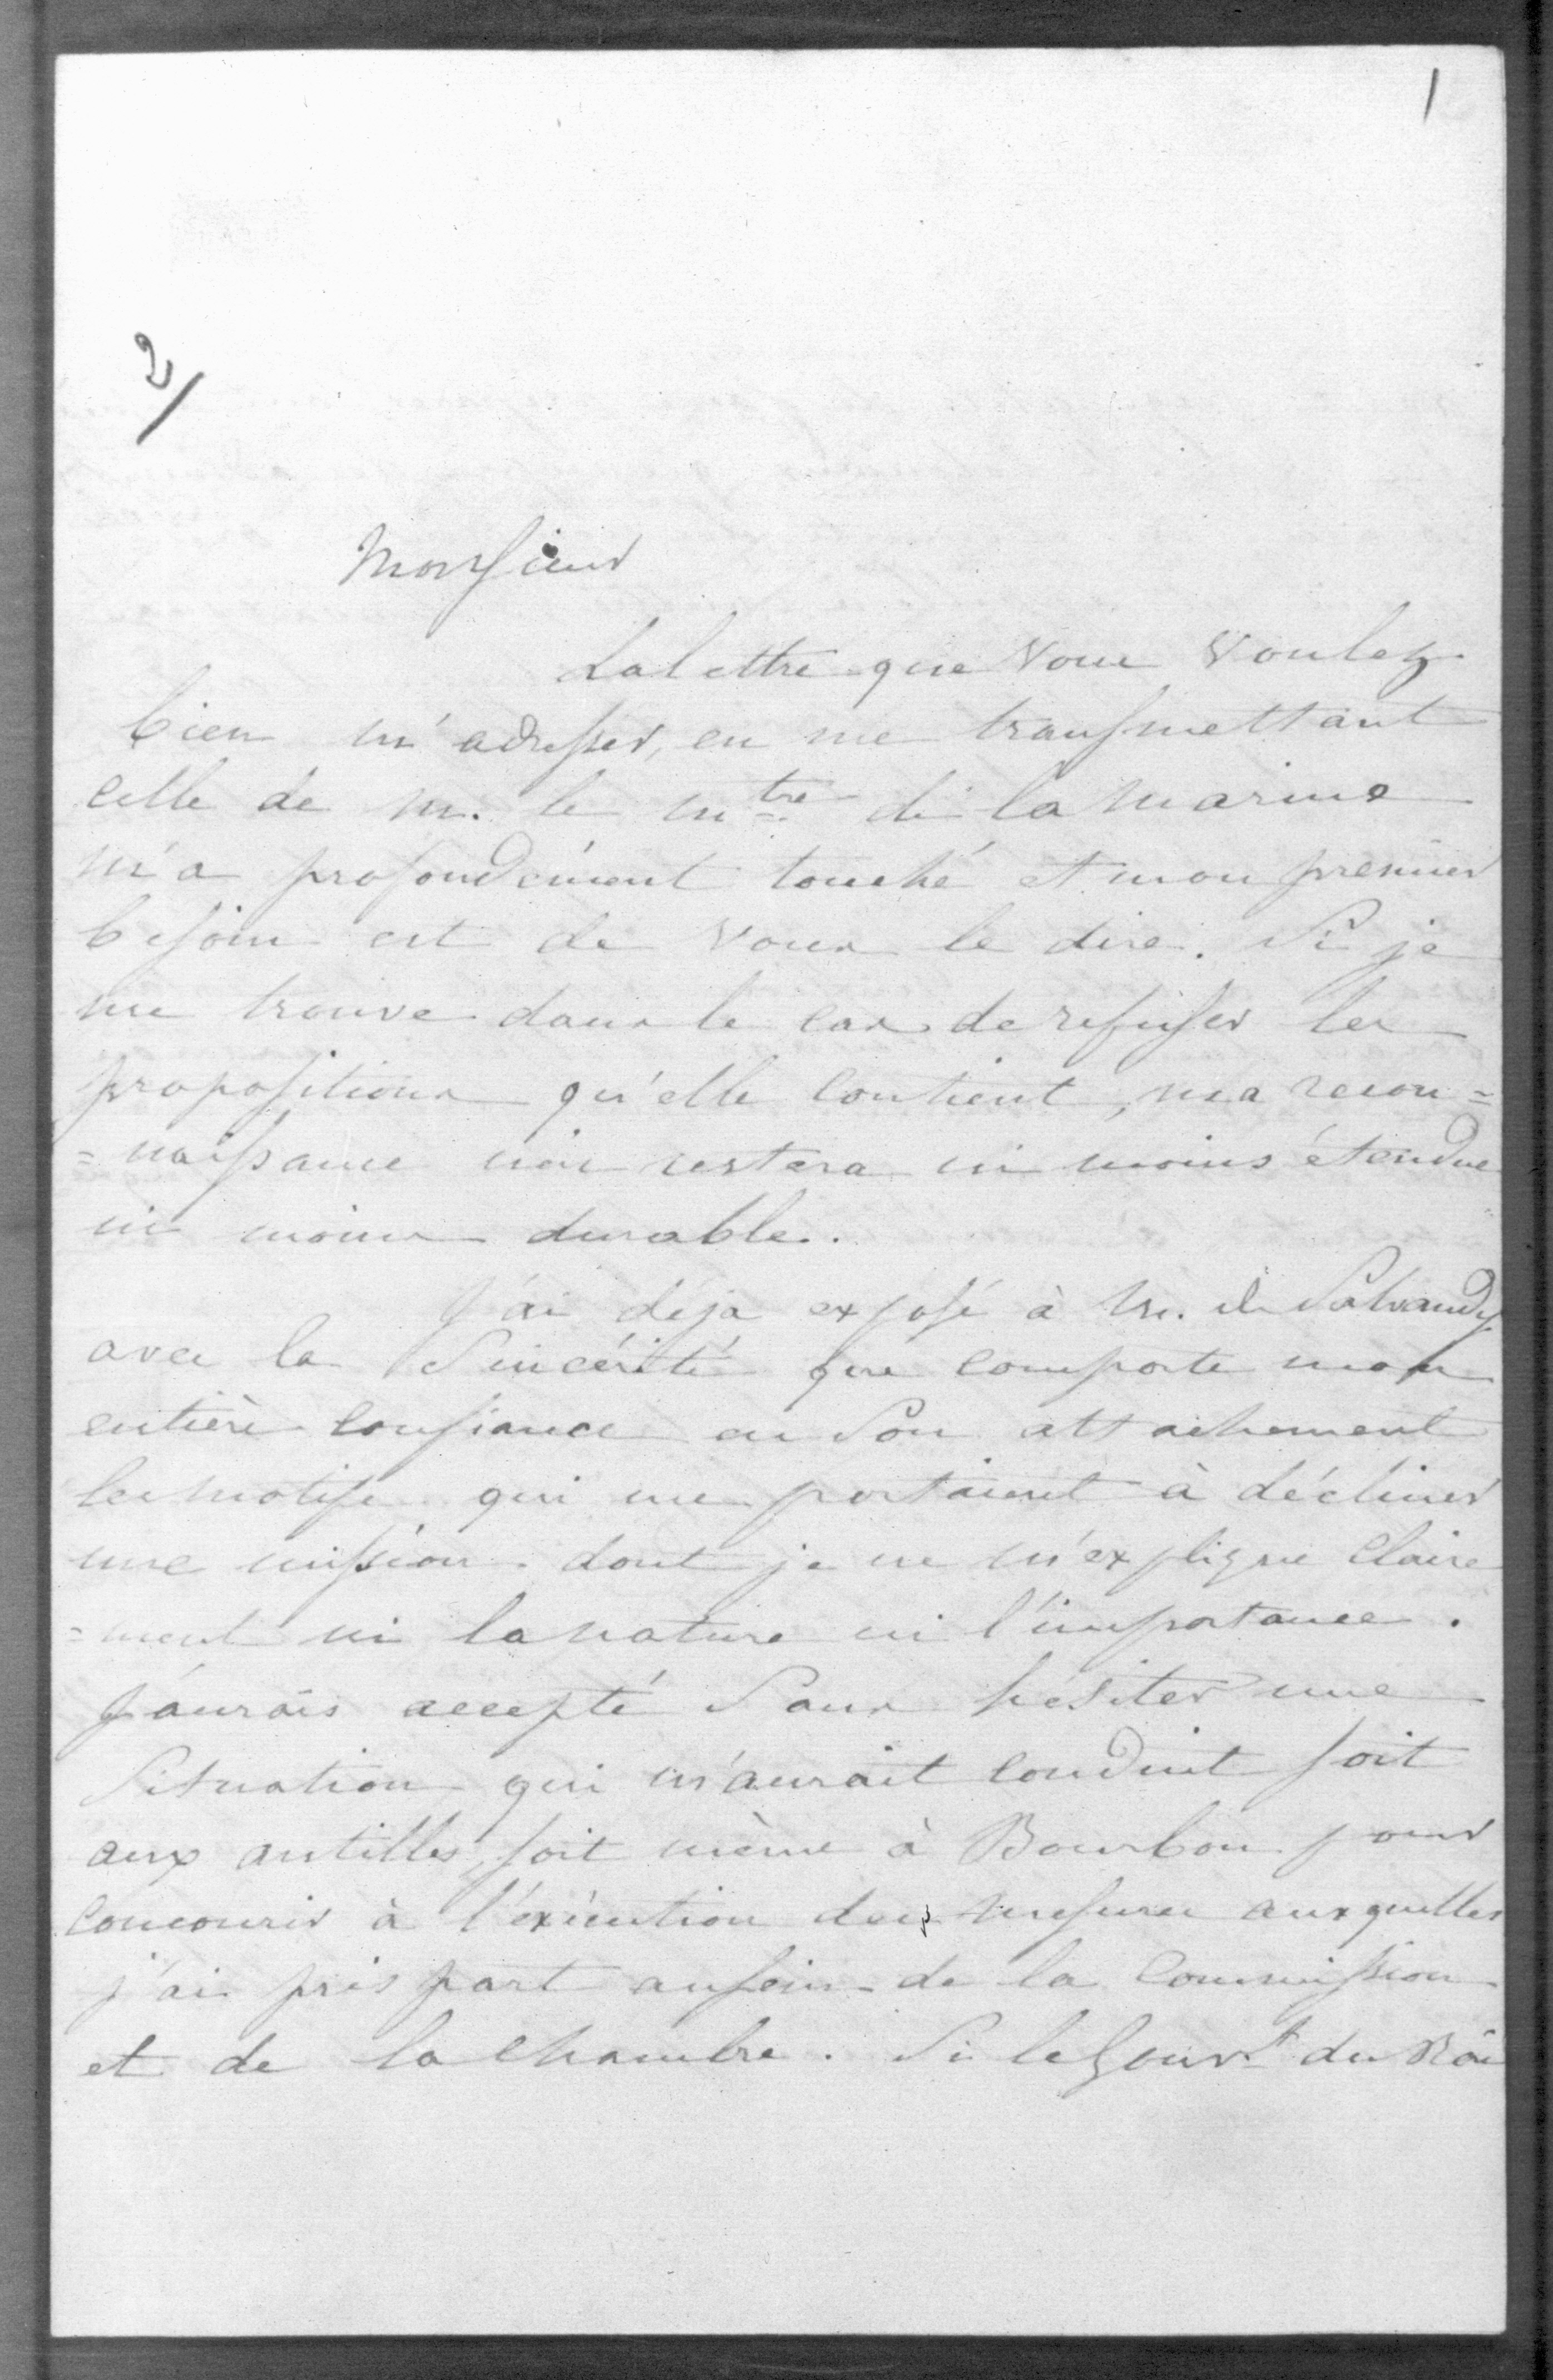 1
2/
Monsieur
La lettre que vous voulez
bien m'adresser, en me transmettant
celle de M. le Mtre de la Marine
m'a profondément touché et mon premier
besoin est de vous le dire. Si je
me trouve dans le cas de refuser les
propositions qu'elle contient, ma recon=
=naissance n'en restera ni moins étendue
ni moins durable.
J'ai déja exposé à M. de Salvandy
avec la sincérité que comporte mon
entière confiance en son attachement
les motifs qui me portaient à décliner
une mission dont je ne m'explique claire
=ment ni la nature ni l'importance.
J'aurais accepté sans hésiter une
situation qui m'aurait conduit soit
aux antilles, soit même à Bourbon pour
concourir à l'exécution des mesures auxquelles
j'ai pris part au sein de la Commission
et de la Chambre. Si le Gouvt du Roi